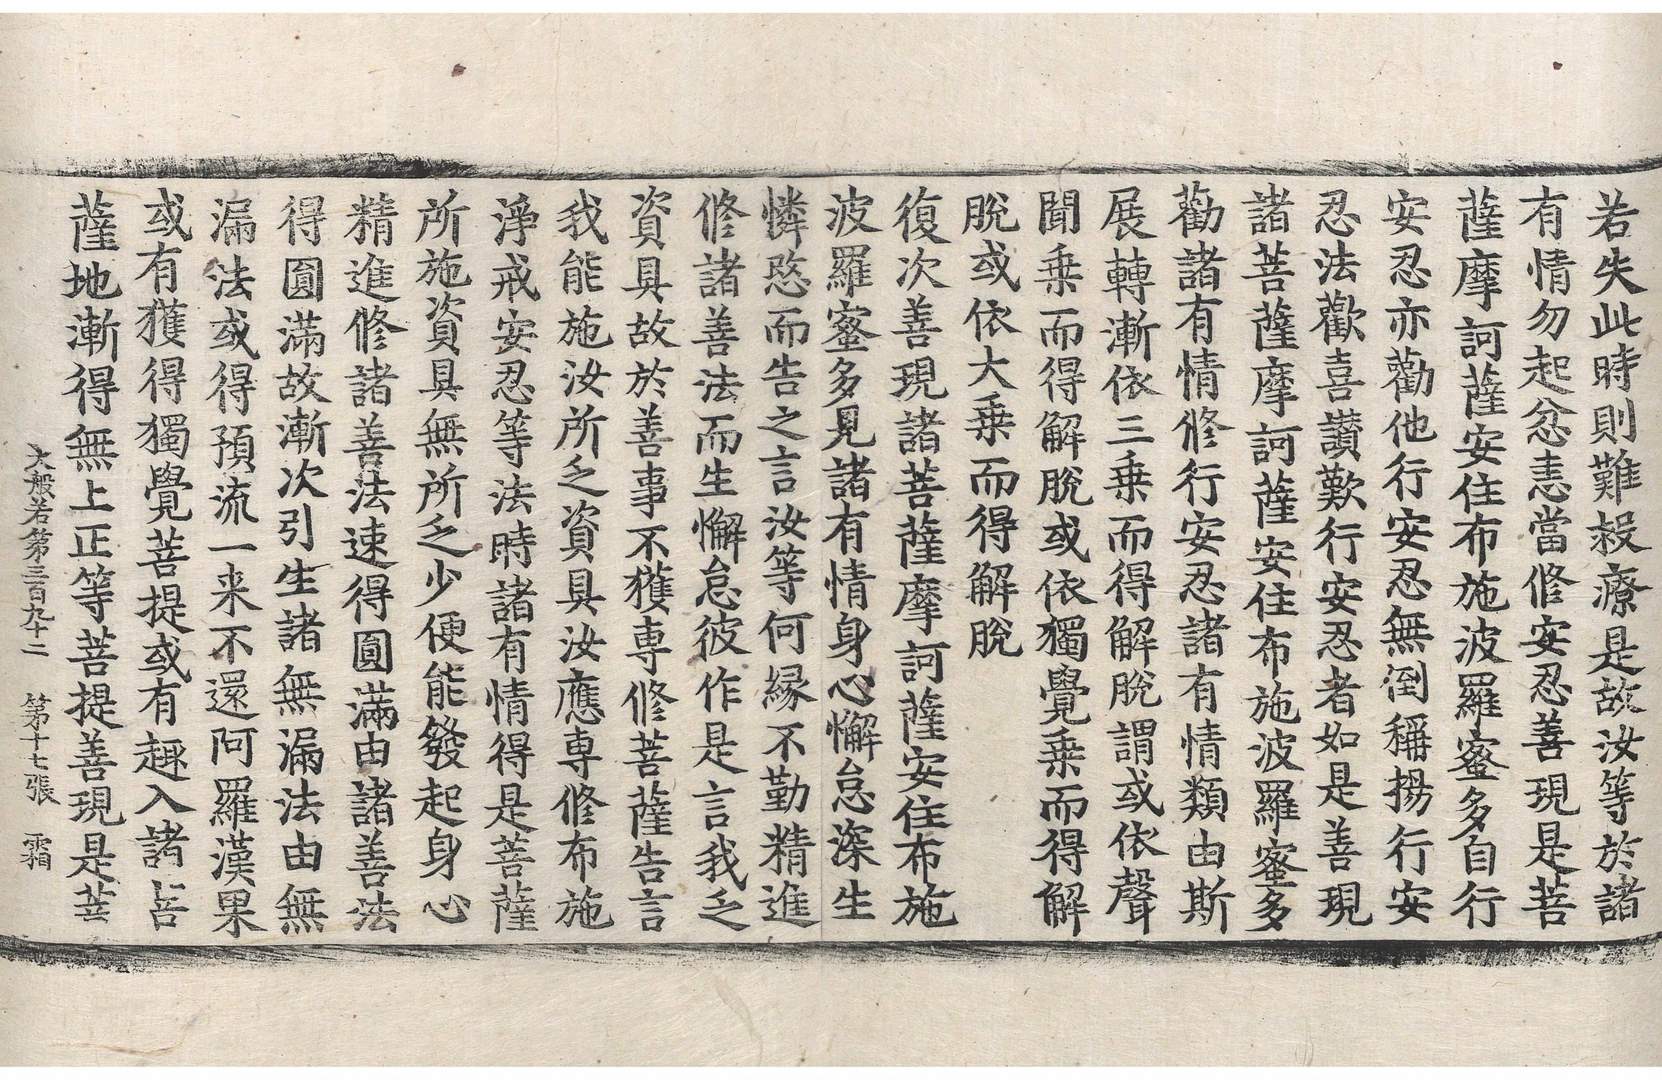 若失此時則難投療是故汝等於諸
有情勿起忿恚當修安忍善現是菩
薩摩訶薩安住布施波羅蜜多自行
安忍亦勸他行安忍無倒稱揚行安
忍法歡喜讃歎行安忍者如是善現
諸菩薩摩訶薩安住布施波羅蜜多
勸諸有情修行安忍諸有情類由斯
展轉漸依三乗而得解脫謂或依聲
聞乗而得解脫或依獨覺乗而得解
脫或依大乗而得解脫
復次善現諸菩薩摩訶薩安住布施
波羅蜜多見諸有情身心懈怠深生
憐愍而告之言汝等何縁不勤精進
修諸善法而生懈怠彼作是言我乏
資具故於善事不獲専修菩薩告言
我能施汝所乏資具汝應専修布施
淨戒安忍等法時諸有情得是菩薩
所施資具無所乏少便能發起身心
精進修諸善法速得圓滿由諸善法
得圓滿故漸次引生諸無漏法由無
漏法或得預流一来不還阿羅漢果
或有獲得獨覺菩提或有趣入諸菩
薩地漸得無上正等菩提善現是菩
大般若第三百九十二　第十七張　霜